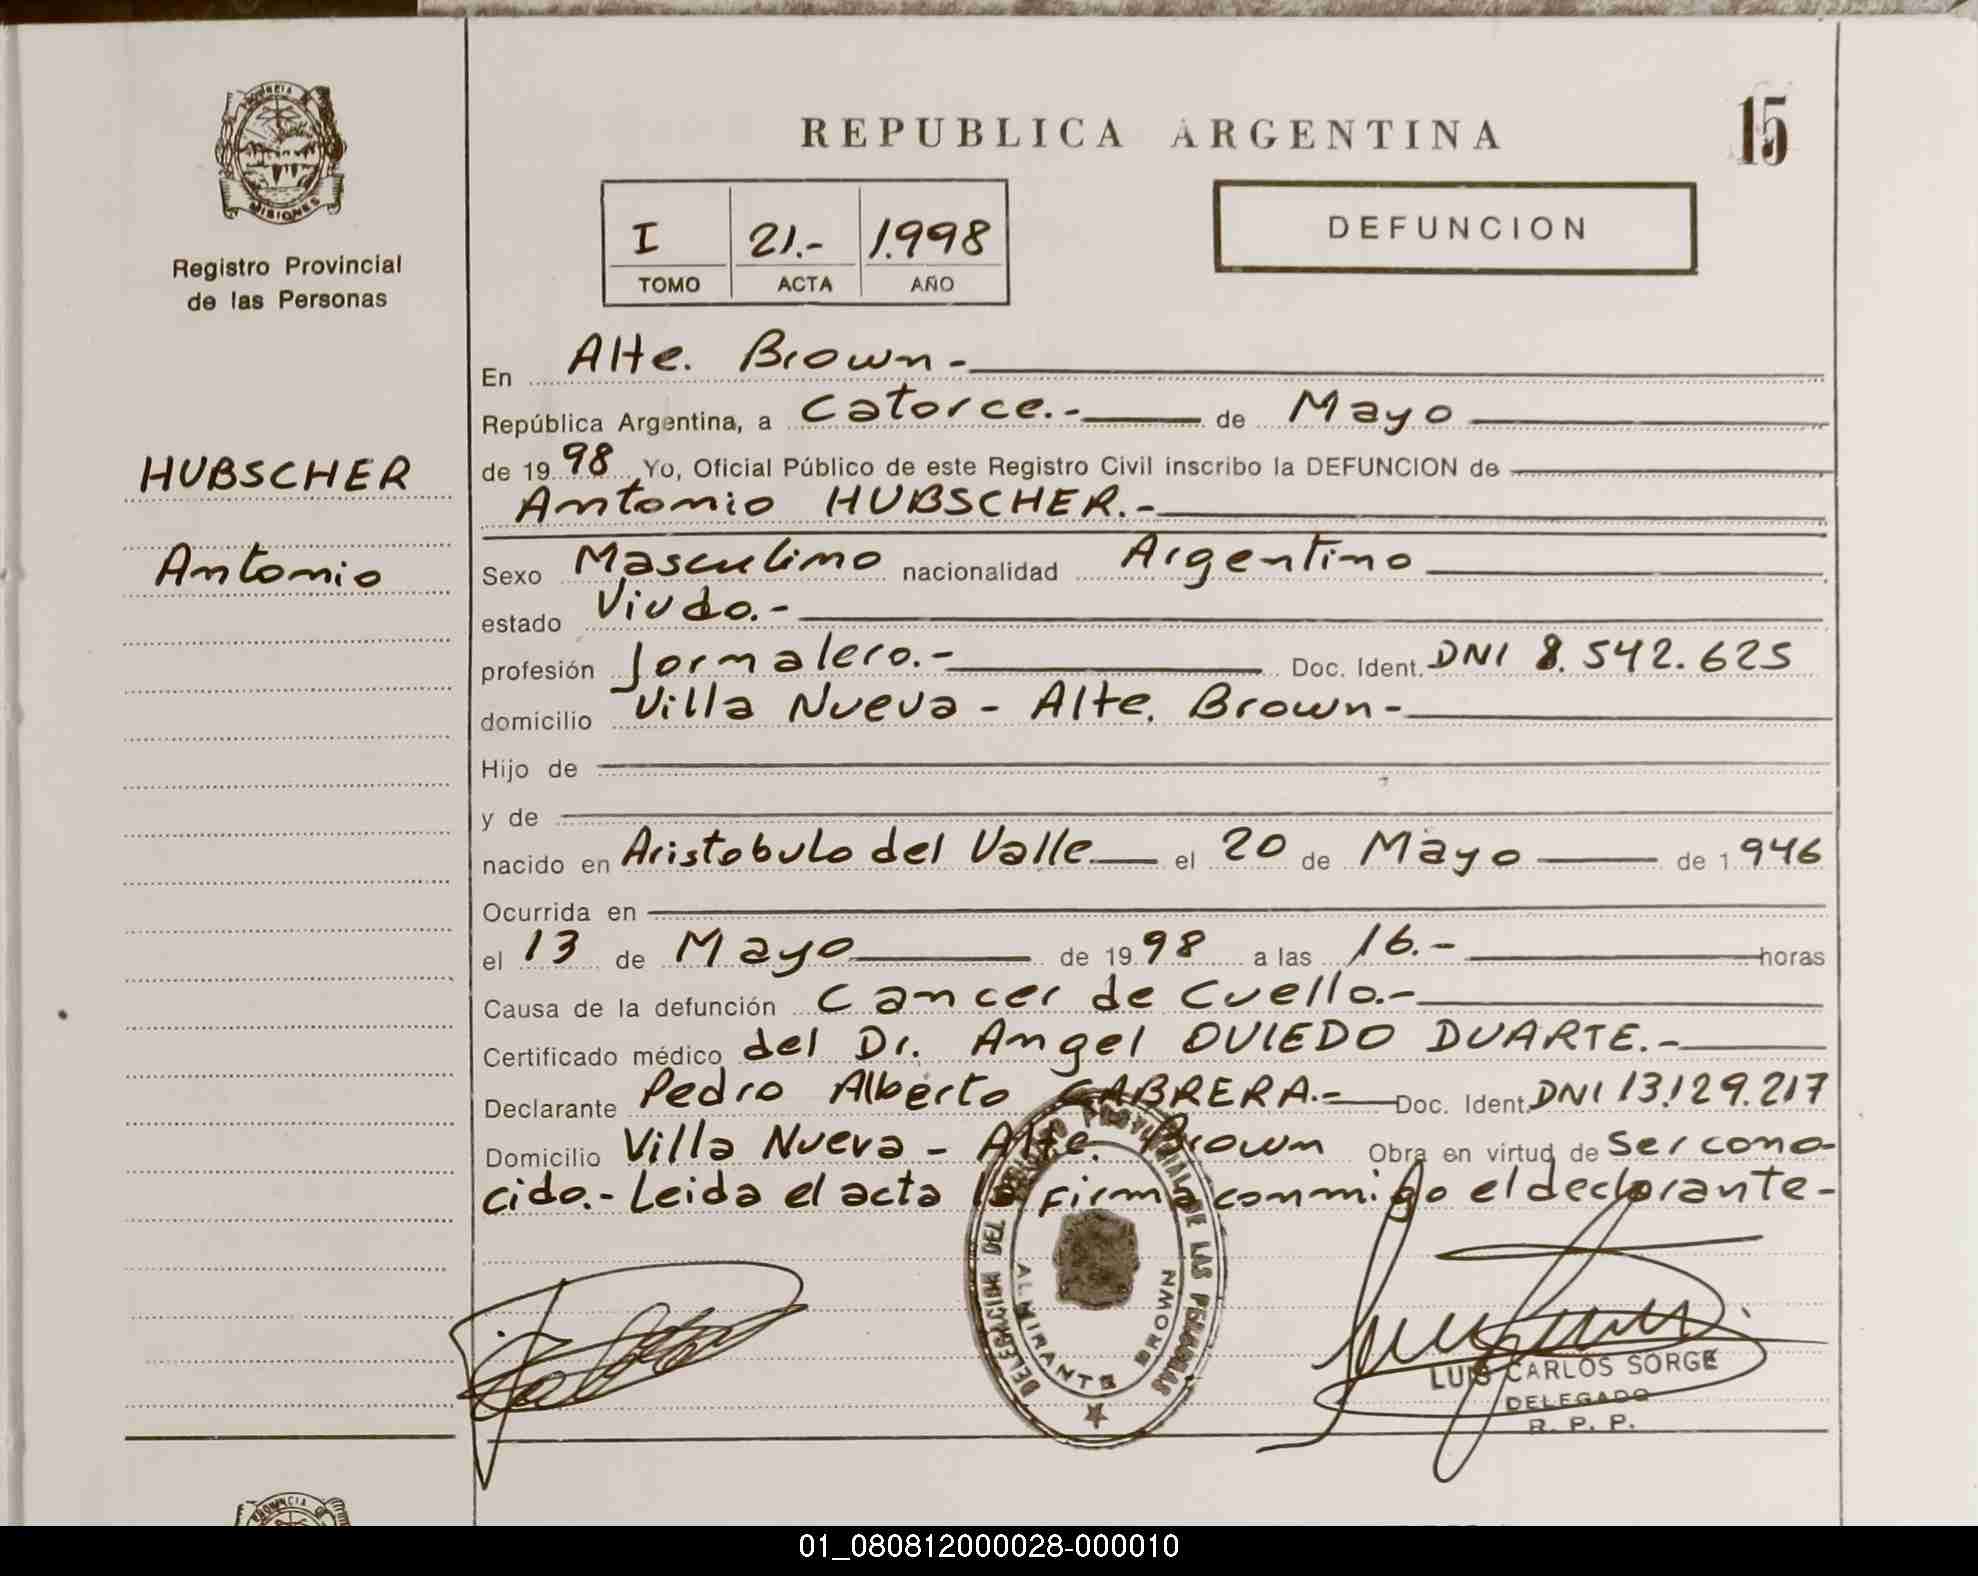 PROVINCIA
MISIONES
Registro Provincial
de las Personas
HUBSCHER
Antonio
REPUBLICA ARGENTINA
15
I 21.- 1.998
TOMO ACTA AÑO
DEFUNCION
En Alte. Brown-
República Argentina, a Catorce.- de Mayo
de 19 98 Yo, Oficial Público de este Registro Civil inscribo la DEFUNCION de
Antonio HUBSCHER.-
Sexo Masculino nacionalidad Argentino
estado Viudo.-
profesión Jornalero.- Doc. Ident. DNI 8.542.625
domicilio Villa Nueva - Alte. Brown-
Hijo de
y de
nacido en Aristobulo del Valle el 20 de Mayo de 1 946
Ocurrida en
el 13 de Mayo de 19 98 a las 16.- horas
Causa de la defunción Cancer de Cuello.-
Certificado médico del Dr. Angel OVIEDO DUARTE.-
Declarante Pedro Alberto CABRERA.- Doc. Ident. DNI 13.129.217
Domicilio Villa Nueva - Alte. Brown Obra en virtud de Ser cono-
cido.- Leida el acta la firma conmigo el declarante-
DELEGACION DEL REGISTRO PROVINCIAL DE LAS PERSONAS
ALMIRANTE BROWN
LUIS CARLOS SORGE
DELEGADO
R. P. P.
PROVINCIA
01_080812000028-000010